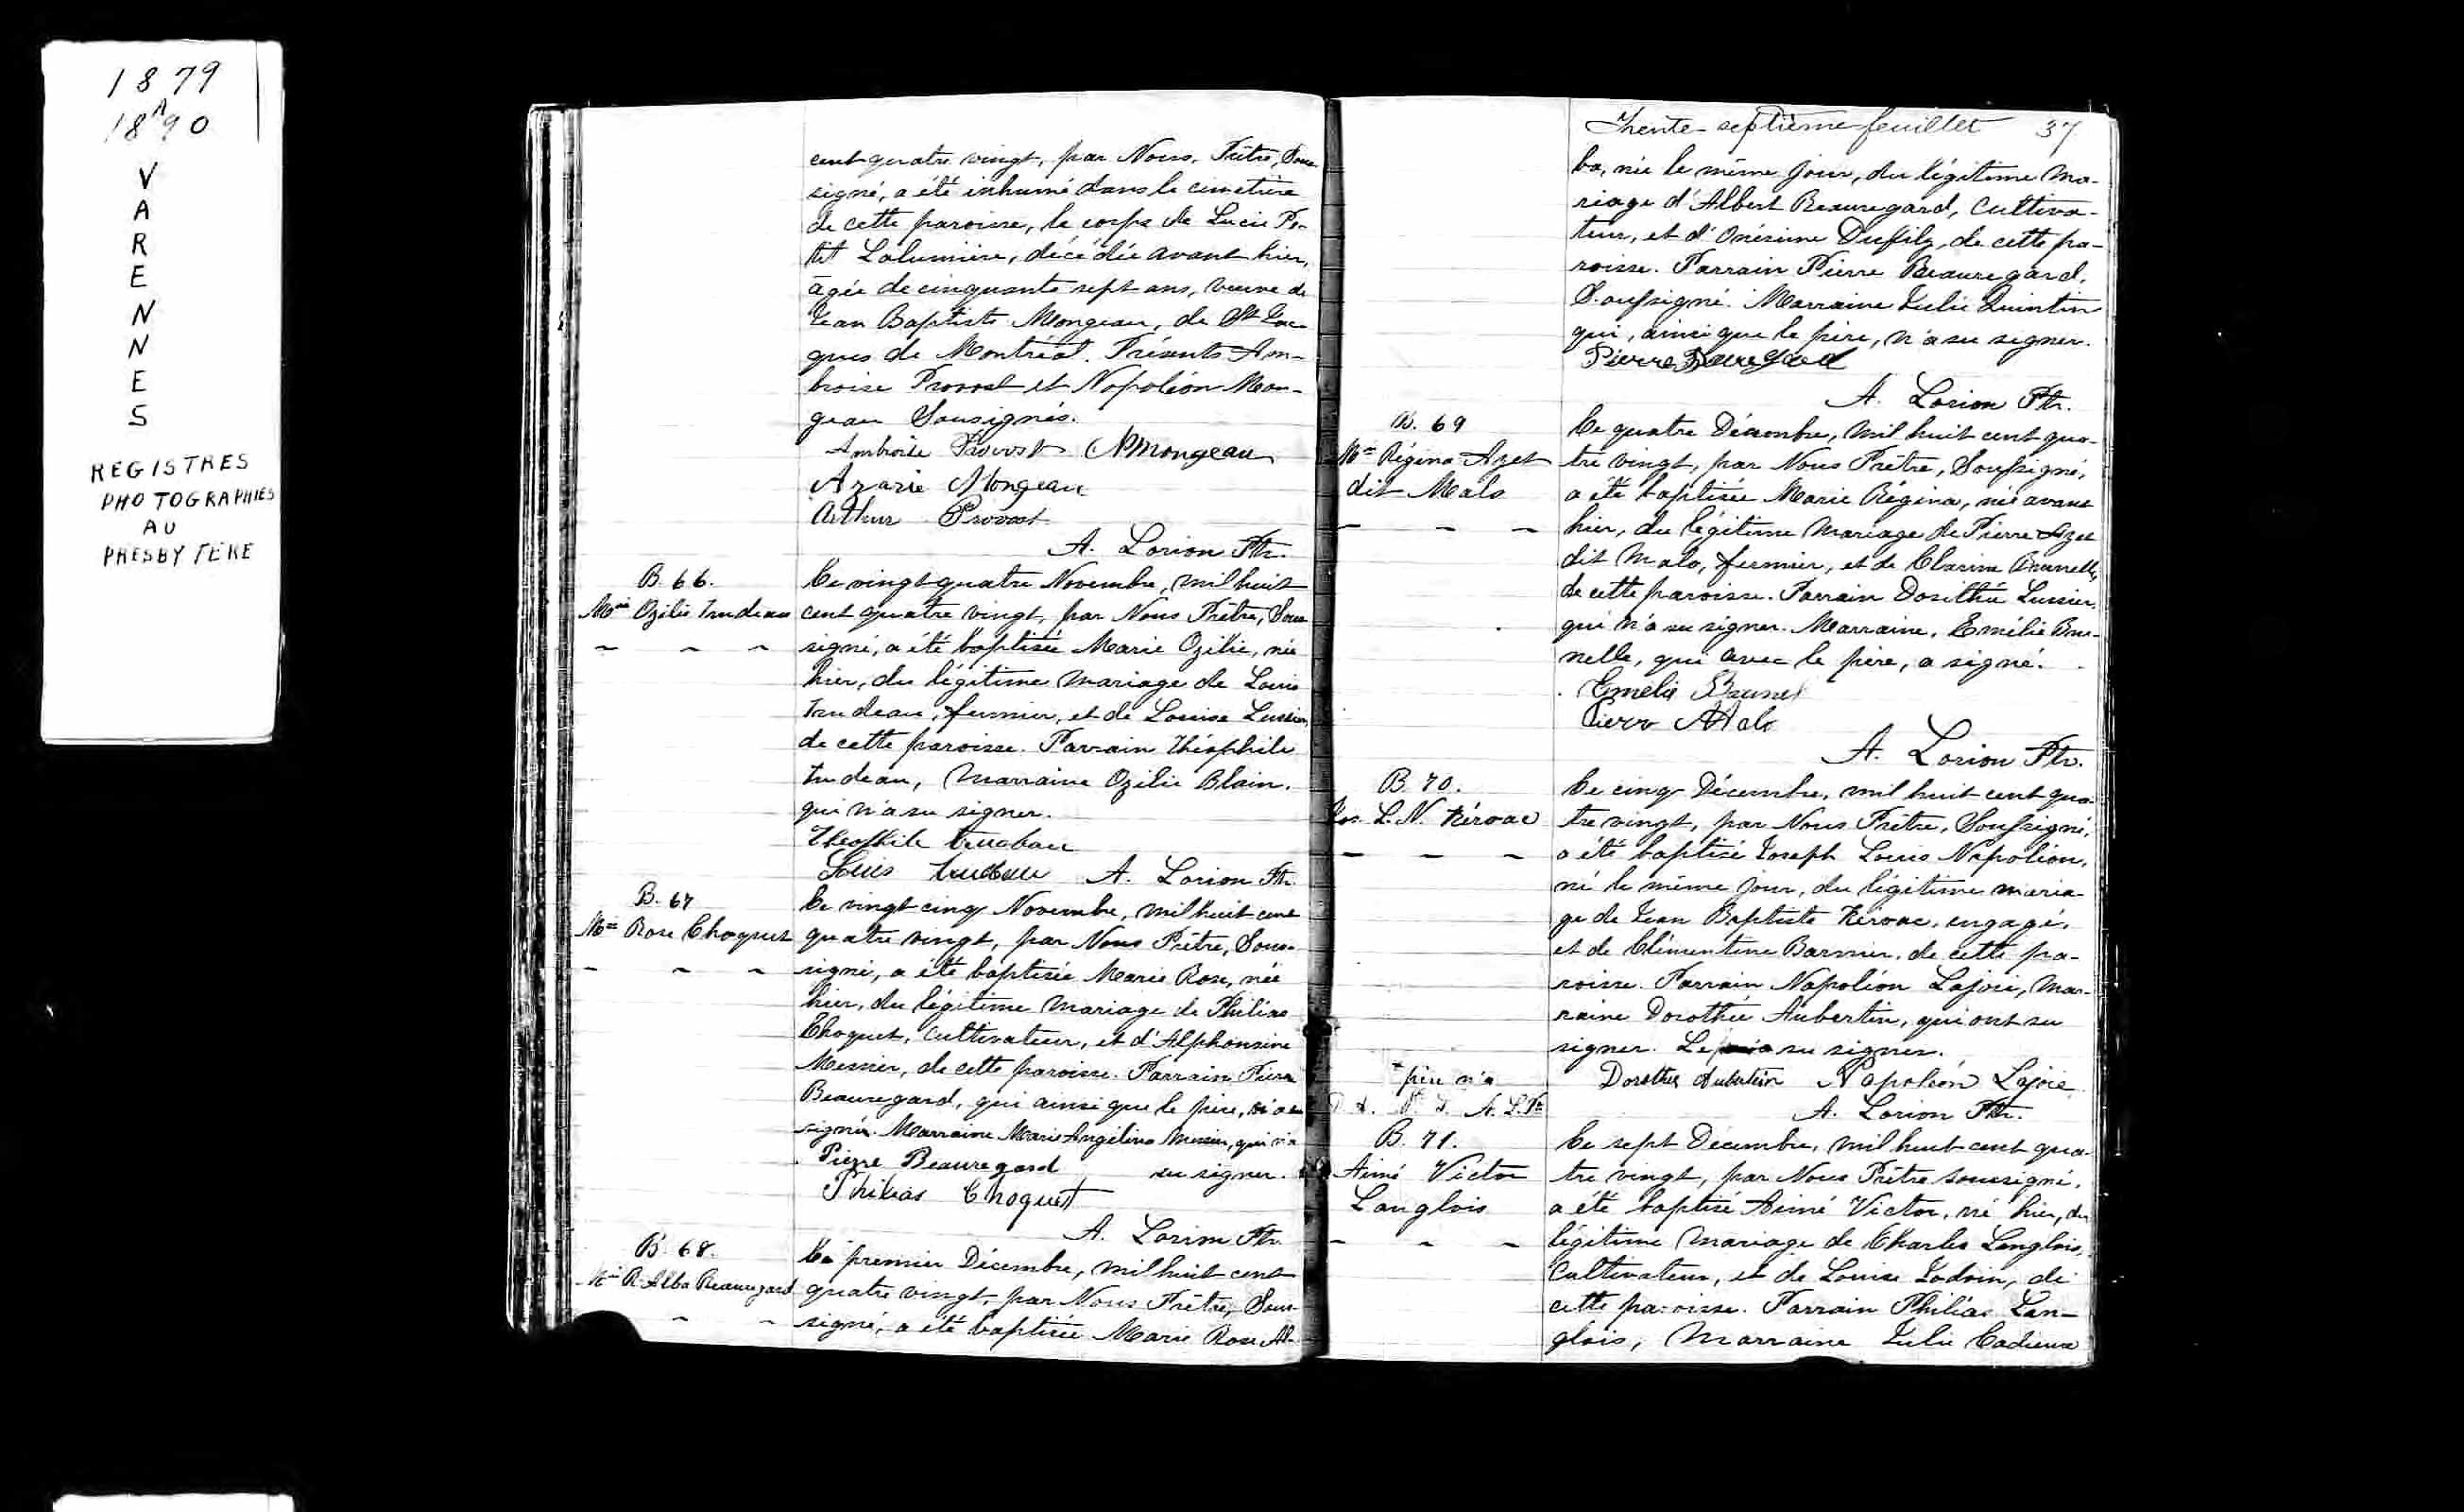 1879
A
1890
V
A
R
E
N
N
E
S
REGISTRES
PHOTOGRAPHIES
AU
PRESBYTÈRE
cent quatre vingt, par Nous, Prêtre, Sous-
signé, a été inhumé dans le cimetière
de cette paroisse, le corps de Lucie Pe-
tit Lalumière, décédée avant hier,
agée de cinquante sept ans, veuve de
Jean Baptiste Mongeau, de St Jac-
ques de Montréal. Présents Am-
broise Provost et Napoléon Mon-
geau Sousignés.
Ambroise Provost N Mongeau
Azarie Mongeau
Arthur Provost
A. Lorion Ptr.
B. 66.
Mie Ozilie Trudeau
Le vingt quatre Novembre, mil huit
cent quatre vingt, par Nous Prêtre, Sous
signé, a été baptisée Marie Ozilie, née
hier, du légitime mariage de Louis
Trudeau, fermier, et de Louise Lussier,
de cette paroisse. Parrain Théophile
Trudeau, Marraine Ozilie Blain.
qui n'a su signer.
Theophile Trudeau
Louis Trudeau A. Lorion Ptr.
B. 67
Mie Rose Choquet
Le vingt cinq Novembre, mil huit cent
quatre vingt, par Nous Prêtre, Sous-
signé, a été baptisée Marie Rose, née
hier, du légitime mariage de Philias
Choquet, Cultivateur, et d'Alphonsine
Messier, de cette paroisse. Parrain Pierre
Beauregard, qui ainsi que le père, a
signé. Marraine Marie Angélina Messier, qui n'a
Pierre Beauregard su signer.
Philias Choquet
A. Lorion Ptr.
B. 68.
Mie R. Alba Beauregard
Le premier Décembre, mil huit cent
quatre vingt, par Nous Prêtre, Sous-
signé, a été baptisée Marie Rose Al-
Trente-septième feuillet 37
ba, née le même jour, du légitime ma-
riage d'Albert Beauregard, Cultiva-
teur, et d'Onésime Dufily, de cette pa-
roisse. Parrain Pierre Beauregard.
Soussigné. Marraine Julie Quintin
qui, ainsi que le père, n'a su signer.
Pierre Beauregard
A. Lorion Ptr.
B. 69
Mie Régina Azet
dit Malo
Le quatre Décembre, mil huit cent qua-
tre vingt, par Nous Prêtre, Soussigné,
a été baptisée Marie Régina, née avant
hier, du légitime mariage de Pierre Azet
dit Malo, fermier, et de Clarine Brunelle,
de cette paroisse. Parrain Dosithée Lussier,
qui n'a su signer. Marraine, Emélie Bru-
nelle, qui avec le père, a signé.
Emélie Brunel
Pierre Malo
A. Lorion Ptr.
B. 70.
Jos. L. N. Kéroac
Le cinq Décembre, mil huit cent qua-
tre vingt, par Nous Prêtre, Soussigné,
a été baptisé Joseph Louis Napoléon,
né le même jour, du légitime maria-
ge de Jean Baptiste Keroac, engagé,
et de Clémentine Barmier, de cette pa-
roisse. Parrain Napoléon Lajoie, mar-
raine Dorothée Aubertin, qui ont su
signer. Le su signer.
* père n'a
D. A. N. L. A. L. Ptr
Dorothée Aubertin Napoléon Lajoie
A. Lorion Ptr.
B. 71.
Aimé Victor
Langlois
Le sept Décembre, mil huit cent qua-
tre vingt, par Nous Prêtre soussigné,
a été baptisé Aimé Victor, né hier, du
légitime mariage de Charles Langlois,
Cultivateur, et de Louise Jodoin, de
cette paroisse. Parrain Philias Lan-
glois, Marraine Julie Cadieux